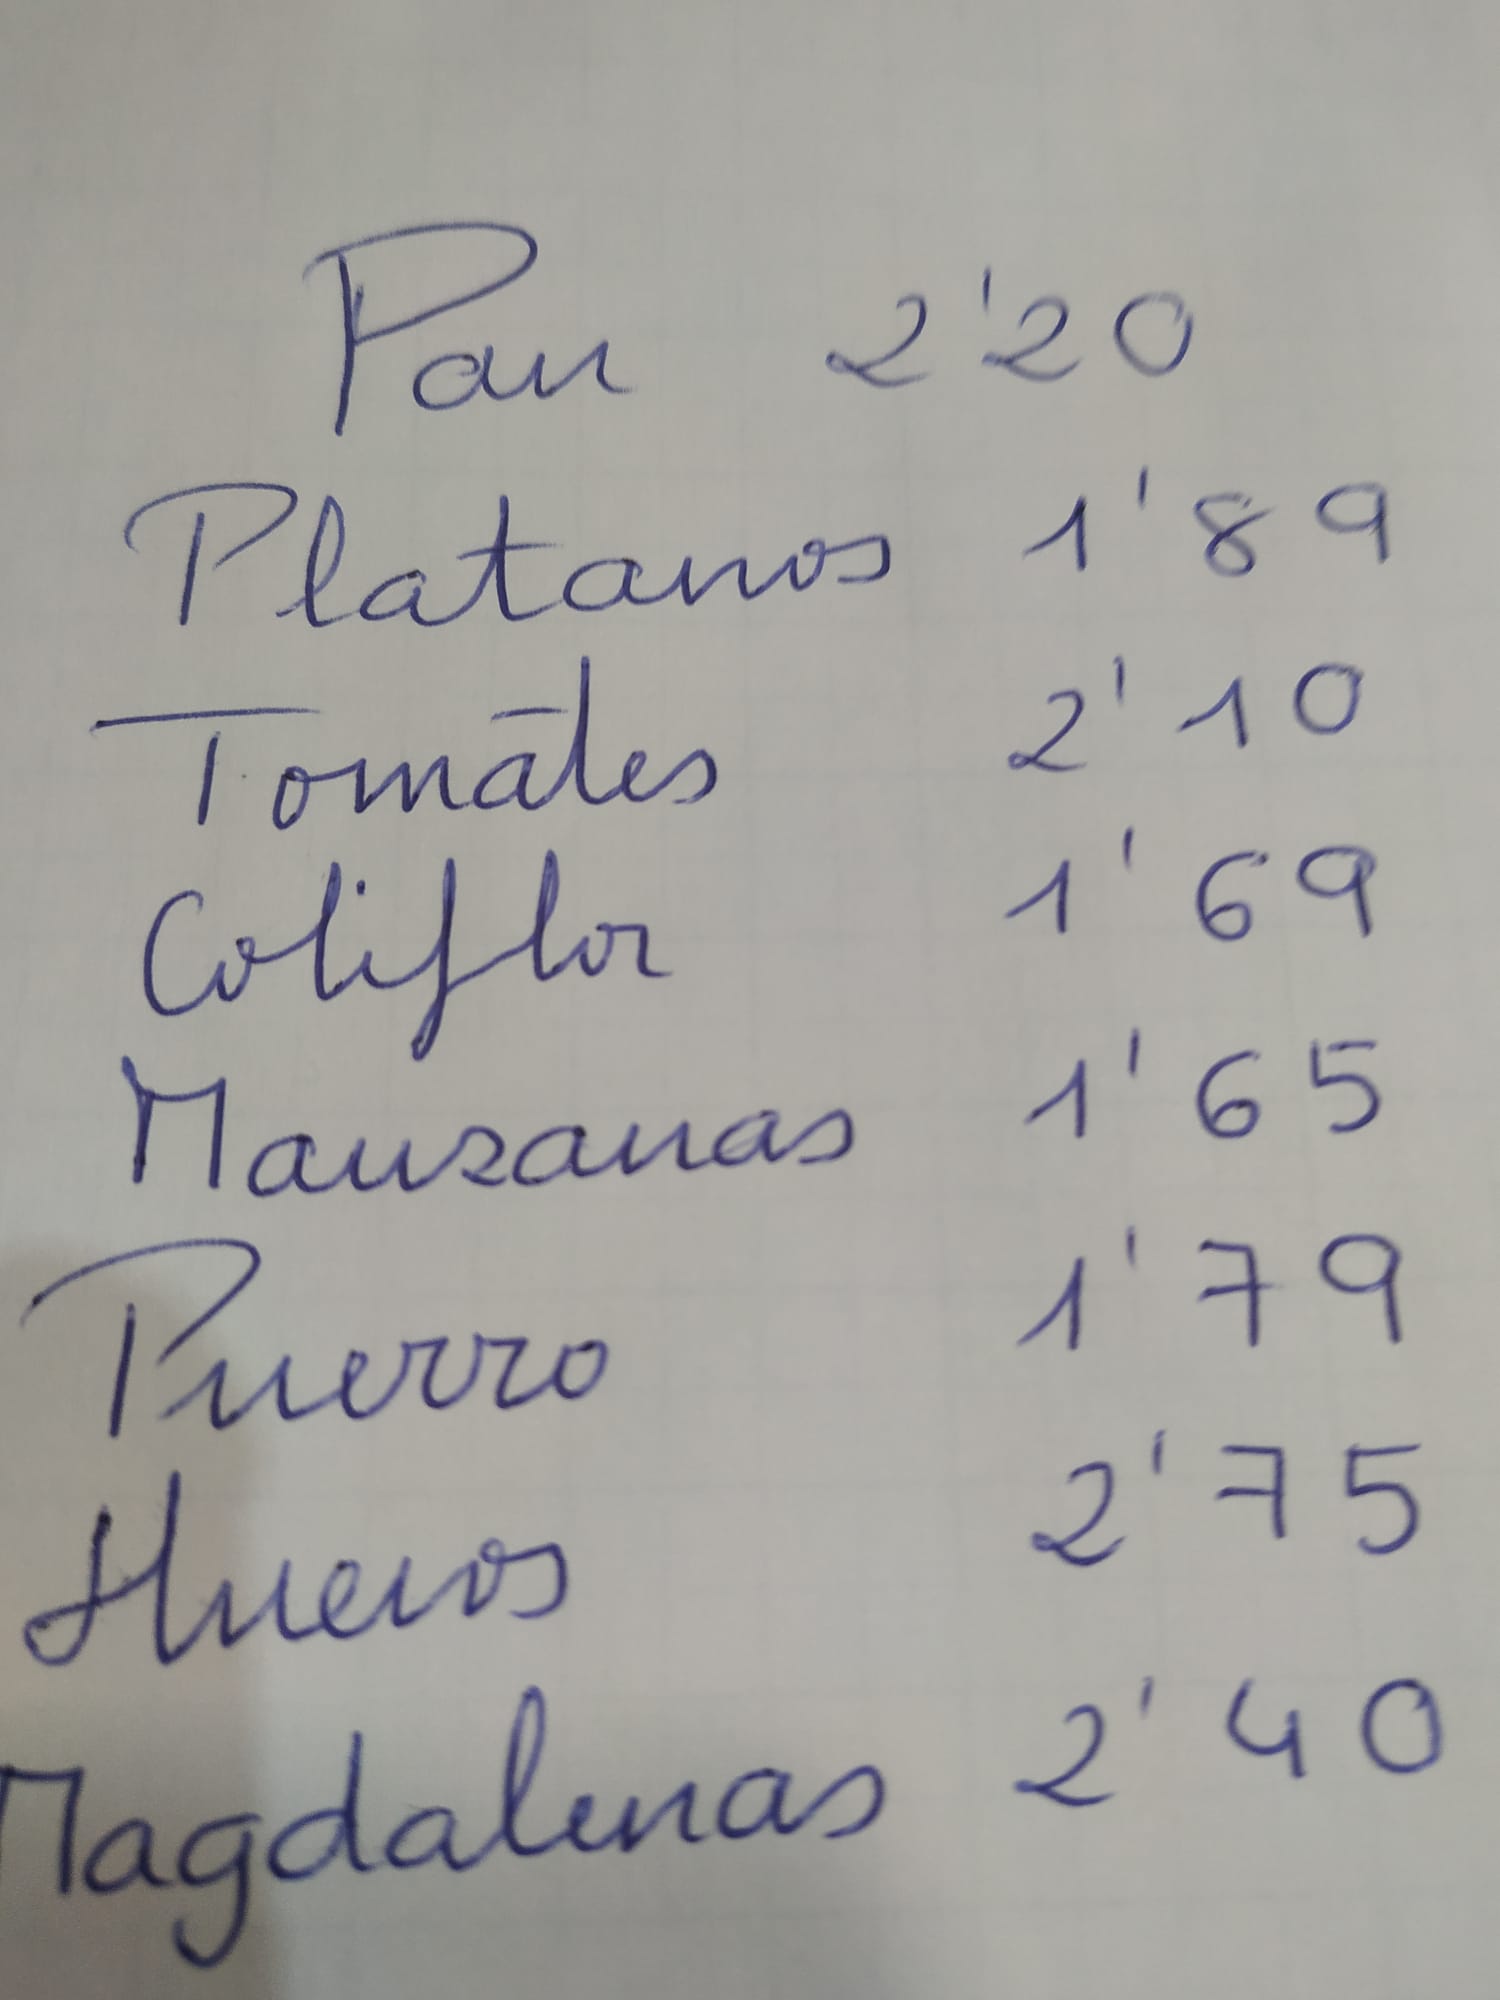 Pan 2'20
Platanos 1'89
Tomates 2'10
Coliflor 1'69
Manzanas 1'65
Puerro 1'79
Huevos 2'75
Magdalenas 2'40